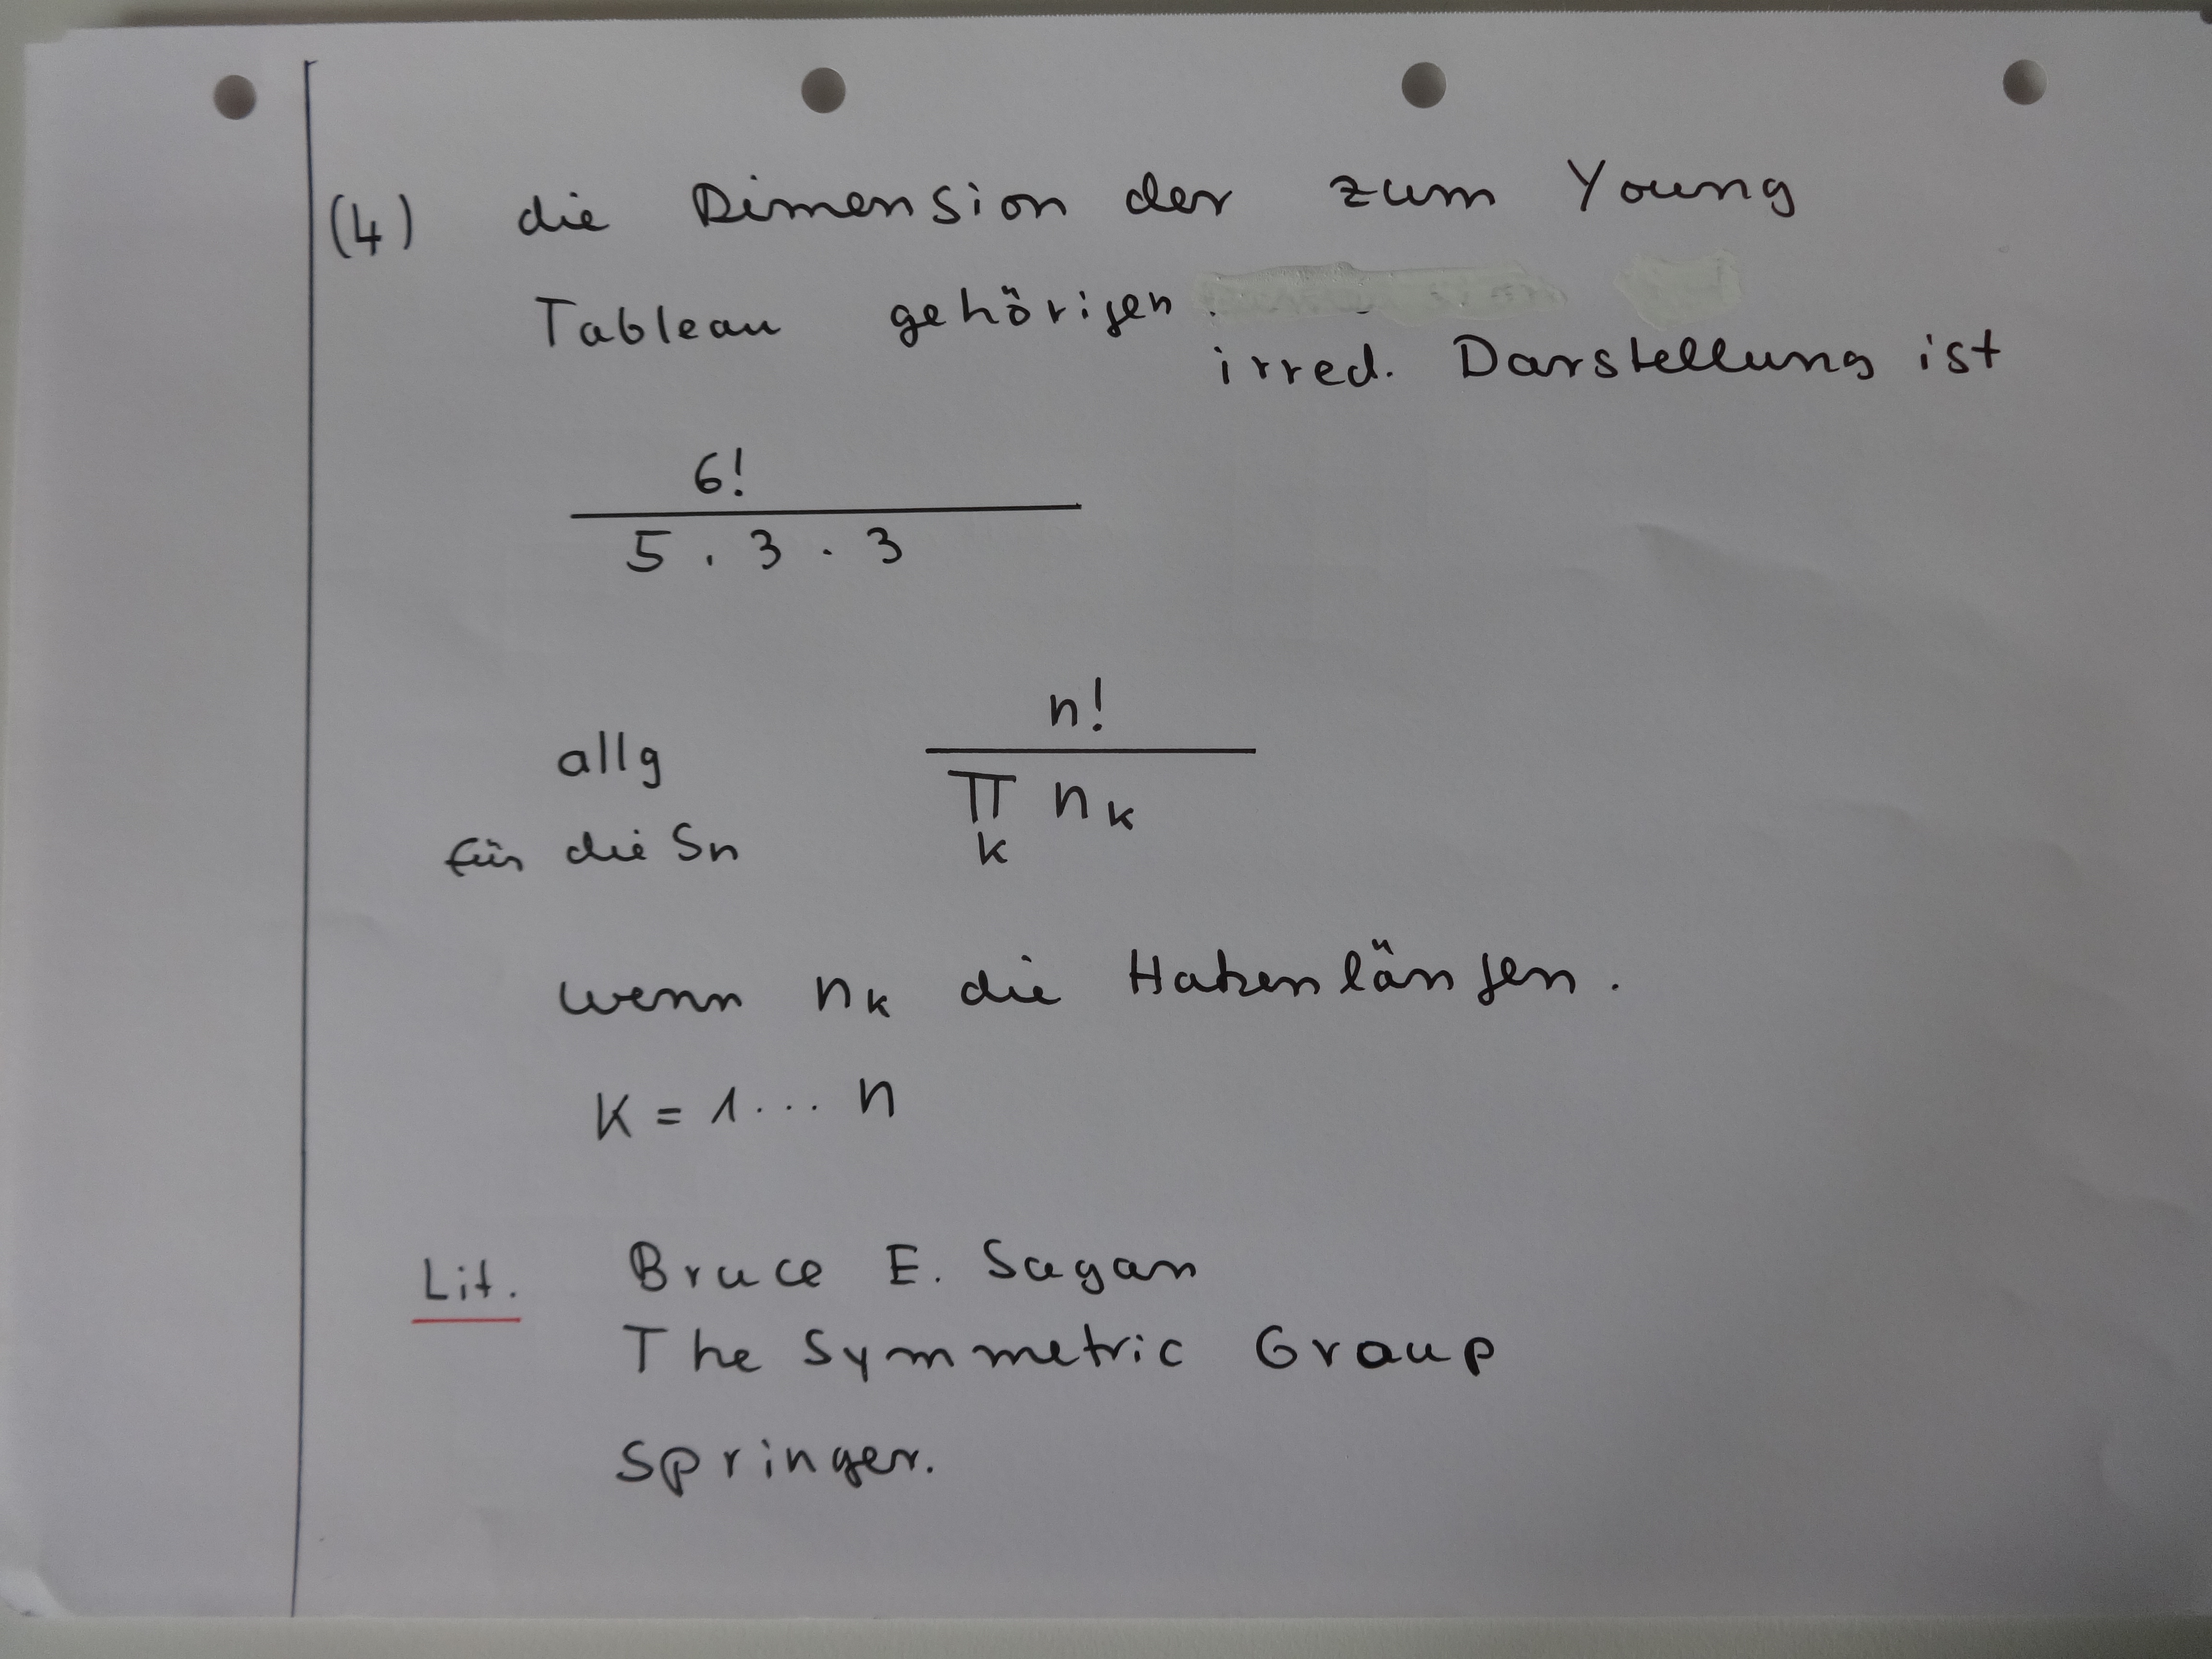 (4) die Dimension der zum Young
Tableau gehörigen
irred. Darstellung ist
6!
5 . 3 . 3
allg
für die Sn
n!
∏ nk
k
wenn nk die Hakenlängen.
K = 1 ... n
Lit. Bruce E. Sagan
The Symmetric Group
Springer.